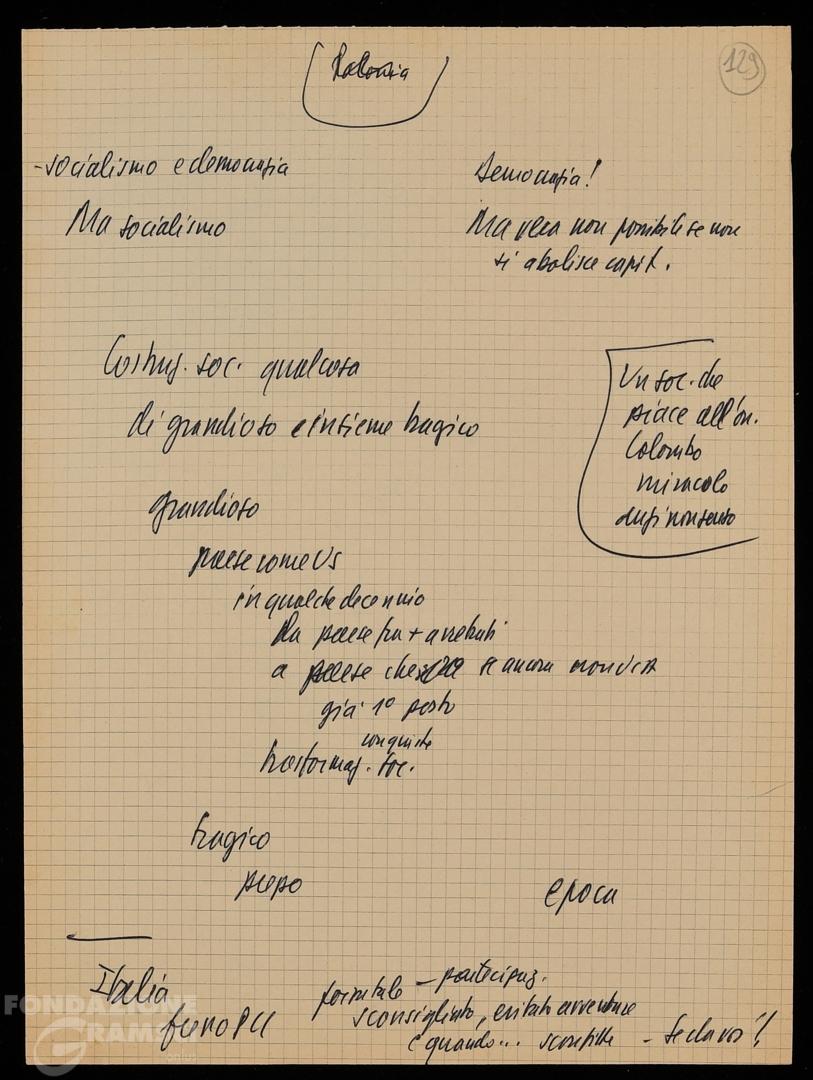 Polonia
129
- socialismo e democrazia
Ma socialismo
Democrazia!
Ma vera non possibile se non
si abolisce capit.
Costruz. soc. qualcosa
di grandioso e insieme tragico
Un soc. che
piace all'on.
Colombo
miracolo
anzi nonsenso
grandioso
paese come Us
in qualche decennio
Da paese fra + arretrati
a paese che se ancora non
già 1° posto
conquiste
trasformaz. soc.
tragico
prezzo
epoca
Italia
fummo PCI
partecipaz.
sconsigliato, evitato avventure
e quando...
FONDAZIONE
GRAMSCI
onlus